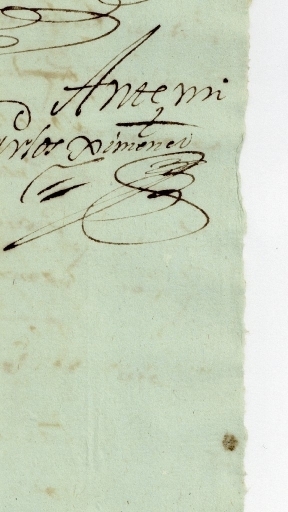 Ante mi
arlos Ximenez